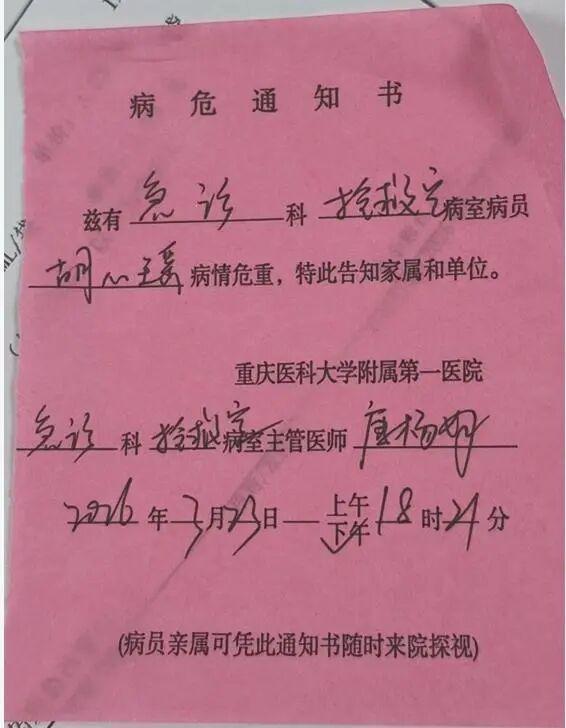 病危通知书
兹有 急诊 科 抢救室 病室病员
胡心瑗 病情危重，特此告知家属和单位。
重庆医科大学附属第一医院
急诊 科 抢救室 病室主管医师
2026 年 3 月 23 日 上午 下午 18 时 21 分
(病员亲属可凭此通知书随时来院探视)